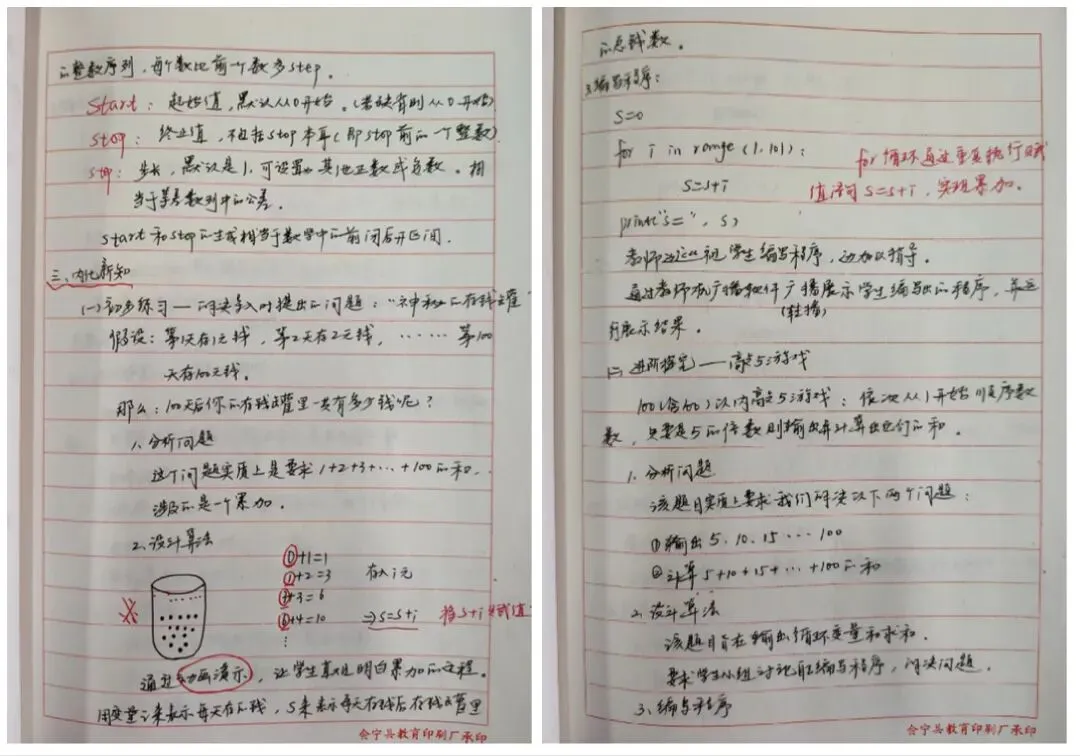 的整数序列，每个数比前一个数多step。
start：起始值，默认从0开始。（若缺省则从0开始）
stop：终止值，不包括stop本身（即stop前的一个整数）
step：步长，默认是1，可设置为其他正数或负数。相
当于等差数列中的公差。
start和stop的生成相当于数学中的前闭后开区间。
三、内化新知
(一)初步练习——解决导入时提出的问题：“神秘的存钱罐”
假设：第1天存1元钱，第2天存2元钱，……第100
天存100元钱。
那么：100天后你的存钱罐里一共有多少钱呢？
1、分析问题
这个问题实质上是要求1+2+3+…+100的和，
涉及的是一个累加。
2、设计算法
0+1=1
1+2=3 存入i元
3+3=6
6+4=10 ⇒s=s+i 将s+i赋值
⋮
通过动画演示，让学生真正明白累加的过程。
用变量i来表示每天存的钱，s来表示每天存钱后存钱罐里
会宁县教育印刷厂承印
的总钱数。
3.编写程序：
s=0
for i in range(1,101)：
s=s+i
for循环通过重复执行赋
值语句s=s+i，实现累加。
print("s=", s)
老师边巡视学生编写程序，边加以指导。
通过老师机广播软件广播展示学生编写出的程序，并运
(转播)
行展示结果。
(二)进阶探究——敲5游戏
100(含100)以内敲5游戏：依次从1开始顺序数
数，只要是5的倍数则输出并计算出它们的和。
1、分析问题
该题目实质上要求我们解决以下两个问题：
①输出5、10、15…100
②计算5+10+15+…+100的和
2、设计算法
该题目旨在输出循环变量和求和。
要求学生小组讨论后编写程序，解决问题。
3、编写程序
会宁县教育印刷厂承印